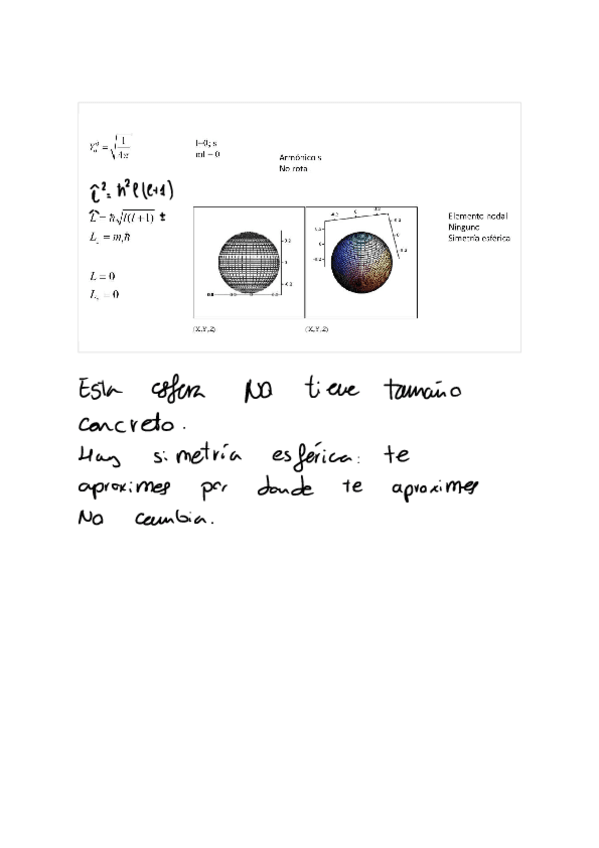 Y₀⁰ = √(1/4π)
l=0; s
ml = 0
Armónico s
No rota
L̂² = ħ² l(l+1)
L̂ = ħ√l(l+1) ħ
L_z = m_l ħ
Elemento nodal
Ninguno
Simetría esférica
L = 0
L_z = 0
(X,Y,Z)
(X,Y,Z)
Esta esfera NO tieve tamaño
concreto.
Hay simetría esférica: te
aproximes por donde te aproximes
NO cambia.